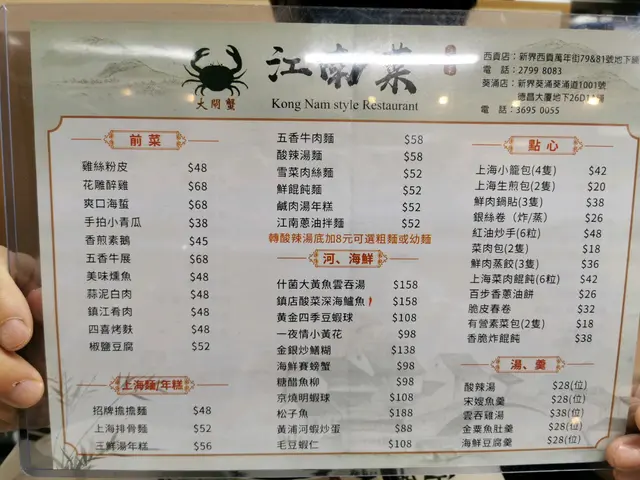 江南菜
大閘蟹
Kong Nam style Restaurant
西貢店：新界西貢萬年街79&81號地下鋪
電 話：2799 8083
葵涌店：新界葵涌葵涌道1001號
德昌大廈地下26D1鋪
電 話：3695 0055
前菜
雞絲粉皮 $48
花雕醉雞 $68
爽口海蜇 $68
手拍小青瓜 $38
香煎素鵝 $45
五香牛展 $68
美味燻魚 $48
蒜泥白肉 $48
鎮江肴肉 $48
四喜烤麩 $48
椒鹽豆腐 $52
上海麵/年糕
招牌擔擔麵 $48
上海排骨麵 $52
三鮮湯年糕 $56
五香牛肉麵 $58
酸辣湯麵 $58
雪菜肉絲麵 $52
鮮餛飩麵 $52
鹹肉湯年糕 $52
江南蔥油拌麵 $52
轉酸辣湯底加8元可選粗麵或幼麵
河、海鮮
什菌大黃魚雲吞湯 $158
鎮店酸菜深海鱸魚 $158
黃金四季豆蝦球 $108
一夜情小黃花 $98
金銀炒鱔糊 $138
海鮮賽螃蟹 $98
糖醋魚柳 $98
京燒明蝦球 $108
松子魚 $188
黃浦河蝦炒蛋 $88
毛豆蝦仁 $108
點心
上海小籠包(4隻) $42
上海生煎包(2隻) $20
鮮肉鍋貼(3隻) $38
銀絲卷（炸/蒸） $26
紅油炒手(6粒) $48
菜肉包(2隻) $18
鮮肉蒸餃(3隻) $36
上海菜肉餛飩(6粒) $42
百步香蔥油餅 $26
脆皮春卷 $32
有營素菜包(2隻) $18
香脆炸餛飩 $38
湯、羹
酸辣湯 $28(位)
宋嫂魚羹 $28(位)
雲吞雞湯 $38(位)
金粟魚肚羹 $28(位)
海鮮豆腐羹 $28(位)